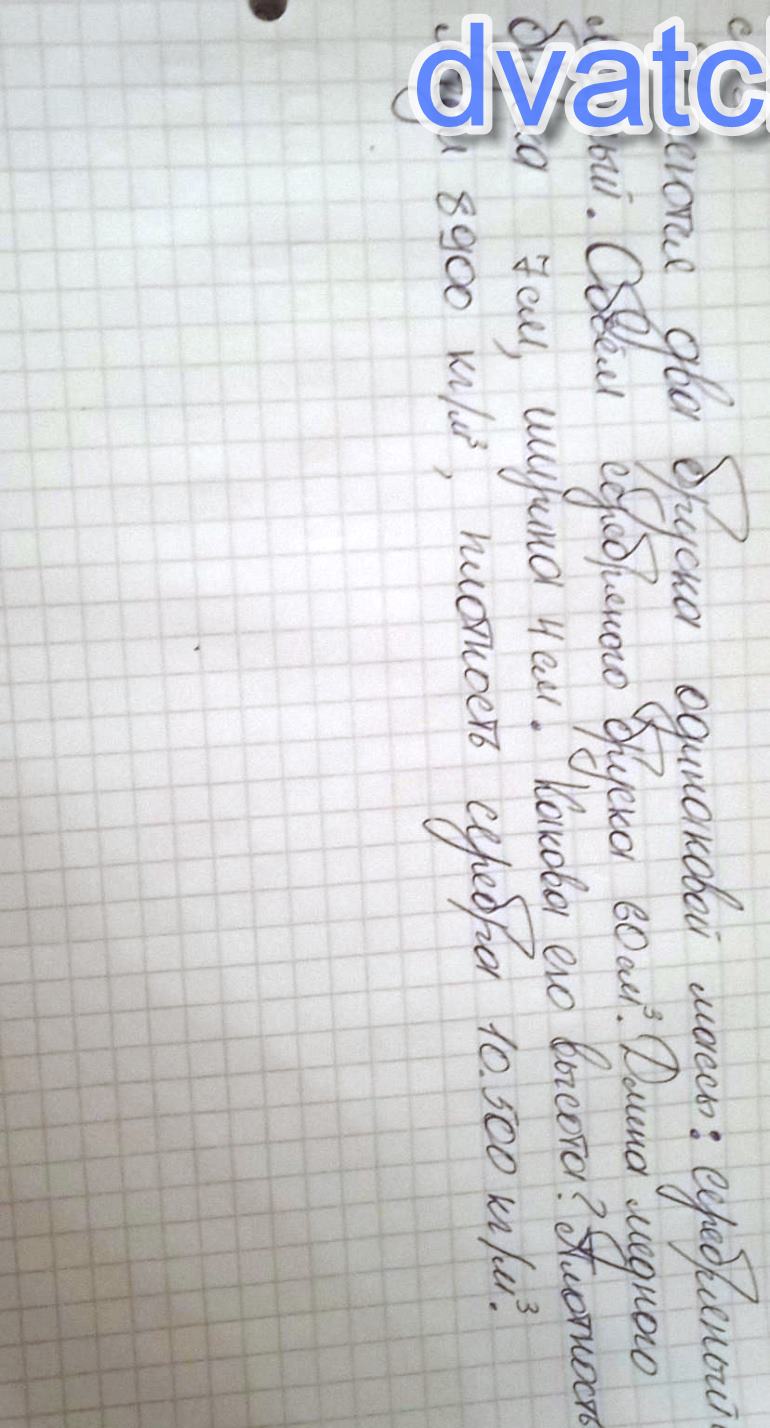 dvatc
два бруска одинаковой массы: серебряный
Объём серебряного бруска 60 см³. Длина медного
7 см, ширина 4 см. Какова его высота? Плотность
8900 кг/м³, плотность серебра 10.500 кг/м³.